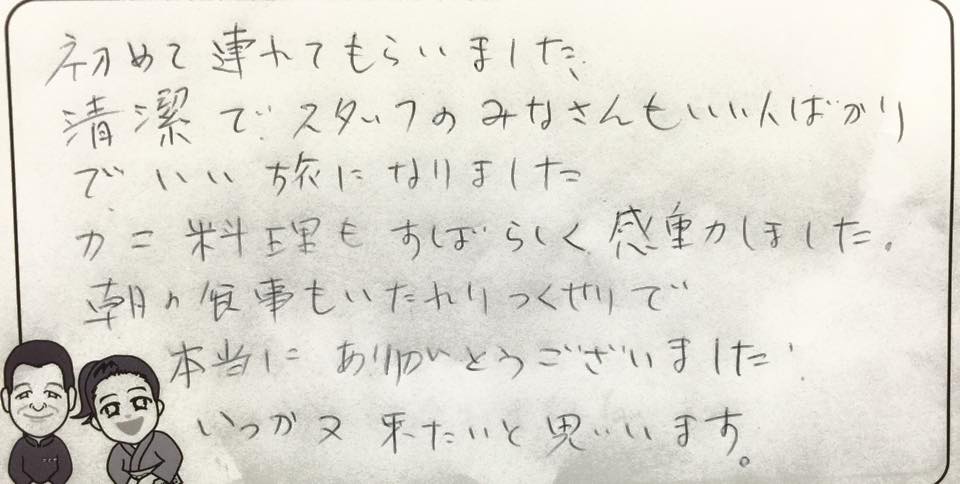 初めて連れてもらいました、
清潔で、スタッフのみなさんもいい人ばかり
で、いい旅になりました
カニ料理もすばらしく感動しました。
朝の食事もいたれりつくせりで
本当にありがとうございました、
いつか又来たいと思いいます。